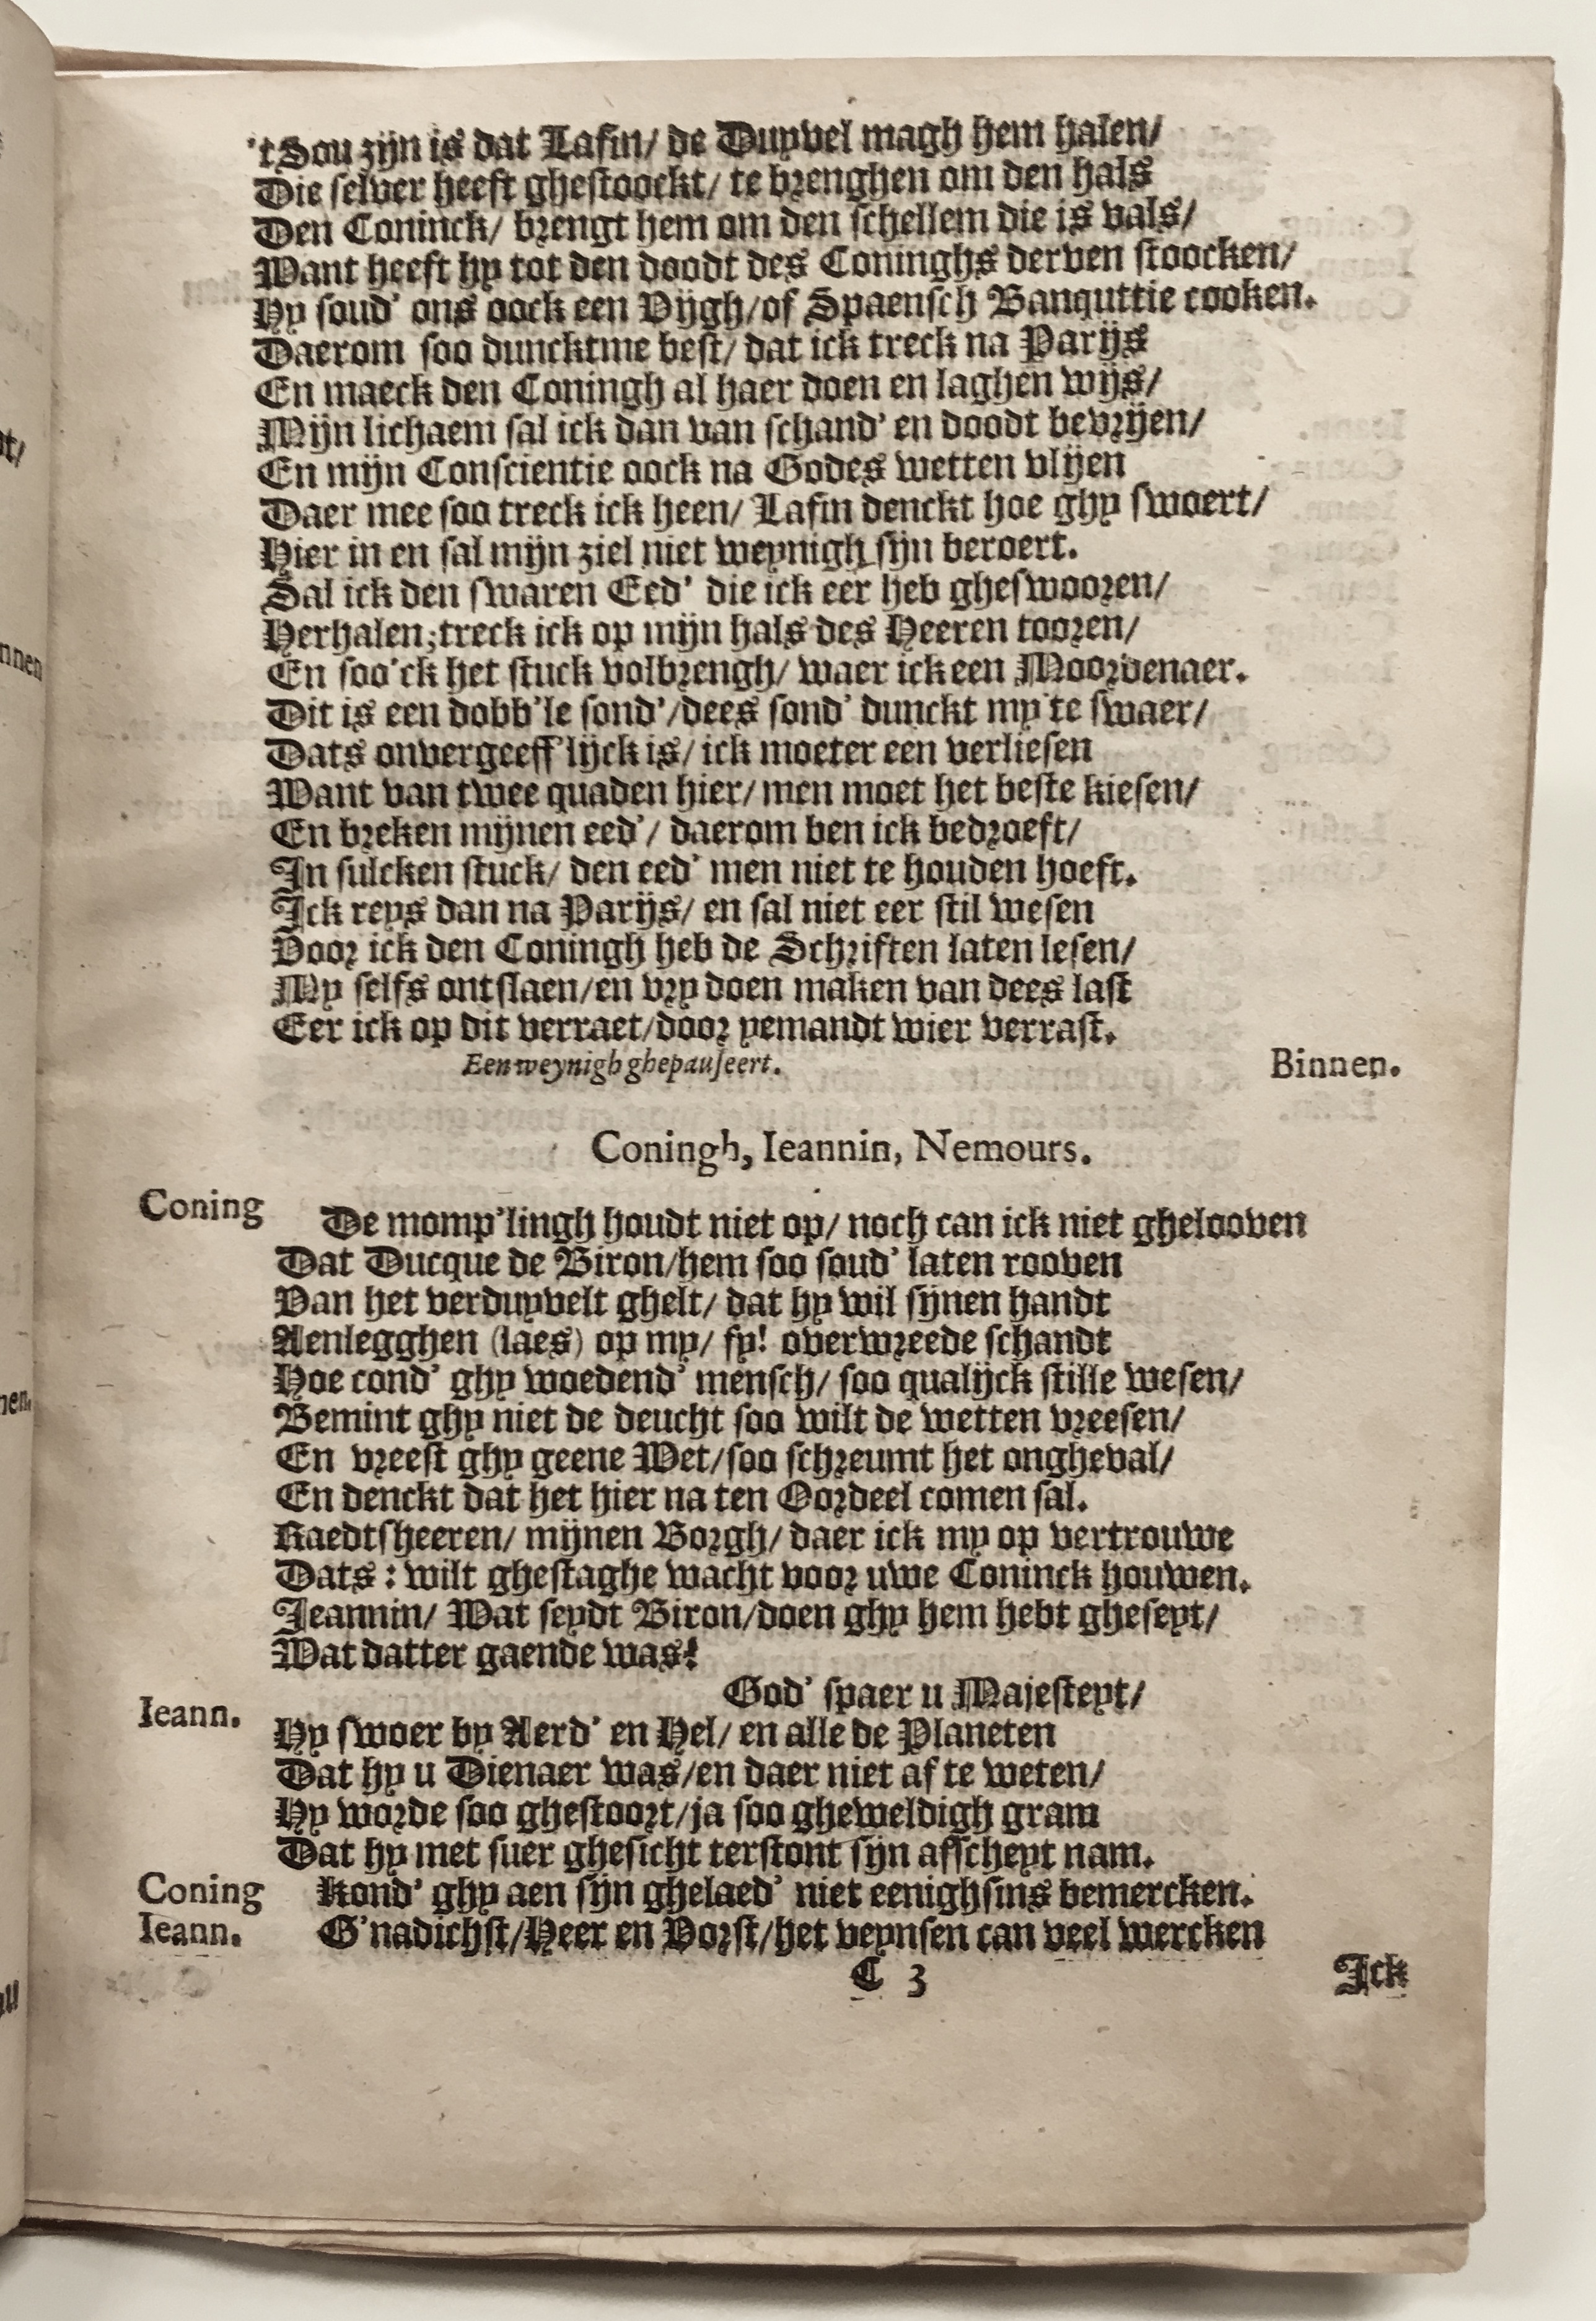 'tSou zijn is dat Lafin/ de Duyvel magh hem halen/
Die selver heeft ghestoockt/ te brenghen om den hals
Den Coninck/ brengt hem om den schellem die is vals/
Want heeft hy tot den doodt des Coninghs derven stoocken/
Hy soud' ons oock een Vijgh/of Spaensch Banquttie cooken.
Daerom soo duncktme best/ dat ick treck na Parijs
En maeck den Coningh al haer doen en laghen wijs/
Mijn lichaem sal ick dan van schand' en doodt bevrijen/
En mijn Conscientie oock na Godes wetten vlijen
Daer mee soo treck ick heen/ Lafin denckt hoe ghy swoert/
Hier in en sal mijn ziel niet weynigh sijn beroert.
Sal ick den swaren Eed' die ick eer heb ghesworen/
Herhalen;treck ick op mijn hals des Heeren tooren/
En soo'ck het stuck volbrengh/ waer ick een Moordenaer.
Dit is een dobb'le sond'/dees sond' dunckt my te swaer/
Dats onvergeeff'lijck is/ ick moeter een verliesen
Want van twee quaden hier/ men moet het beste kiesen/
En breken mijnen eed'/ daerom ben ick bedroeft/
In sulcken stuck/ den eed' men niet te houden hoeft.
Ick reys dan na Parijs/ en sal niet eer stil wesen
Voor ick den Coningh heb de Schriften laten lesen/
My selfs ontslaen/en vry doen maken van dees last
Eer ick op dit verraet/door yemandt wier verrast.
Een weynigh ghepauseert. Binnen.
Coningh, Ieannin, Nemours.
Coning De momp'lingh houdt niet op/ noch can ick niet ghelooven
Dat Ducque de Biron/hem soo soud' laten rooven
Van het verduyvelt ghelt/ dat hy wil sijnen handt
Aenlegghen (laes) op my/ fy! overwreede schandt
Hoe cond' ghy woedend' mensch/ soo qualijck stille wesen/
Bemint ghy niet de deucht soo wilt de wetten vreesen/
En vreest ghy geene Wet/soo schreumt het ongheval/
En denckt dat het hier na ten Oordeel comen sal.
Raedtsheeren/ mijnen Borgh/ daer ick my op vertrouwe
Dats : wilt ghestaghe wacht voor uwe Coninck houwen.
Jeannin/ Wat seydt Biron/doen ghy hem hebt gheseyt/
Wat datter gaende was?
Ieann. God' spaer u Majesteyt/
Hy swoer by Aerd' en Hel/ en alle de Planeten
Dat hy u Dienaer was/en daer niet af te weten/
Hy worde soo ghestoort/ja soo gheweldigh gram
Dat hy met suer ghesicht terstont sijn affcheyt nam.
Coning Kond' ghy aen sijn ghelaed' niet eenighsins bemercken.
Ieann. G'nadichst/Heer en Vorst/het veynsen can veel wercken
C 3 Ick